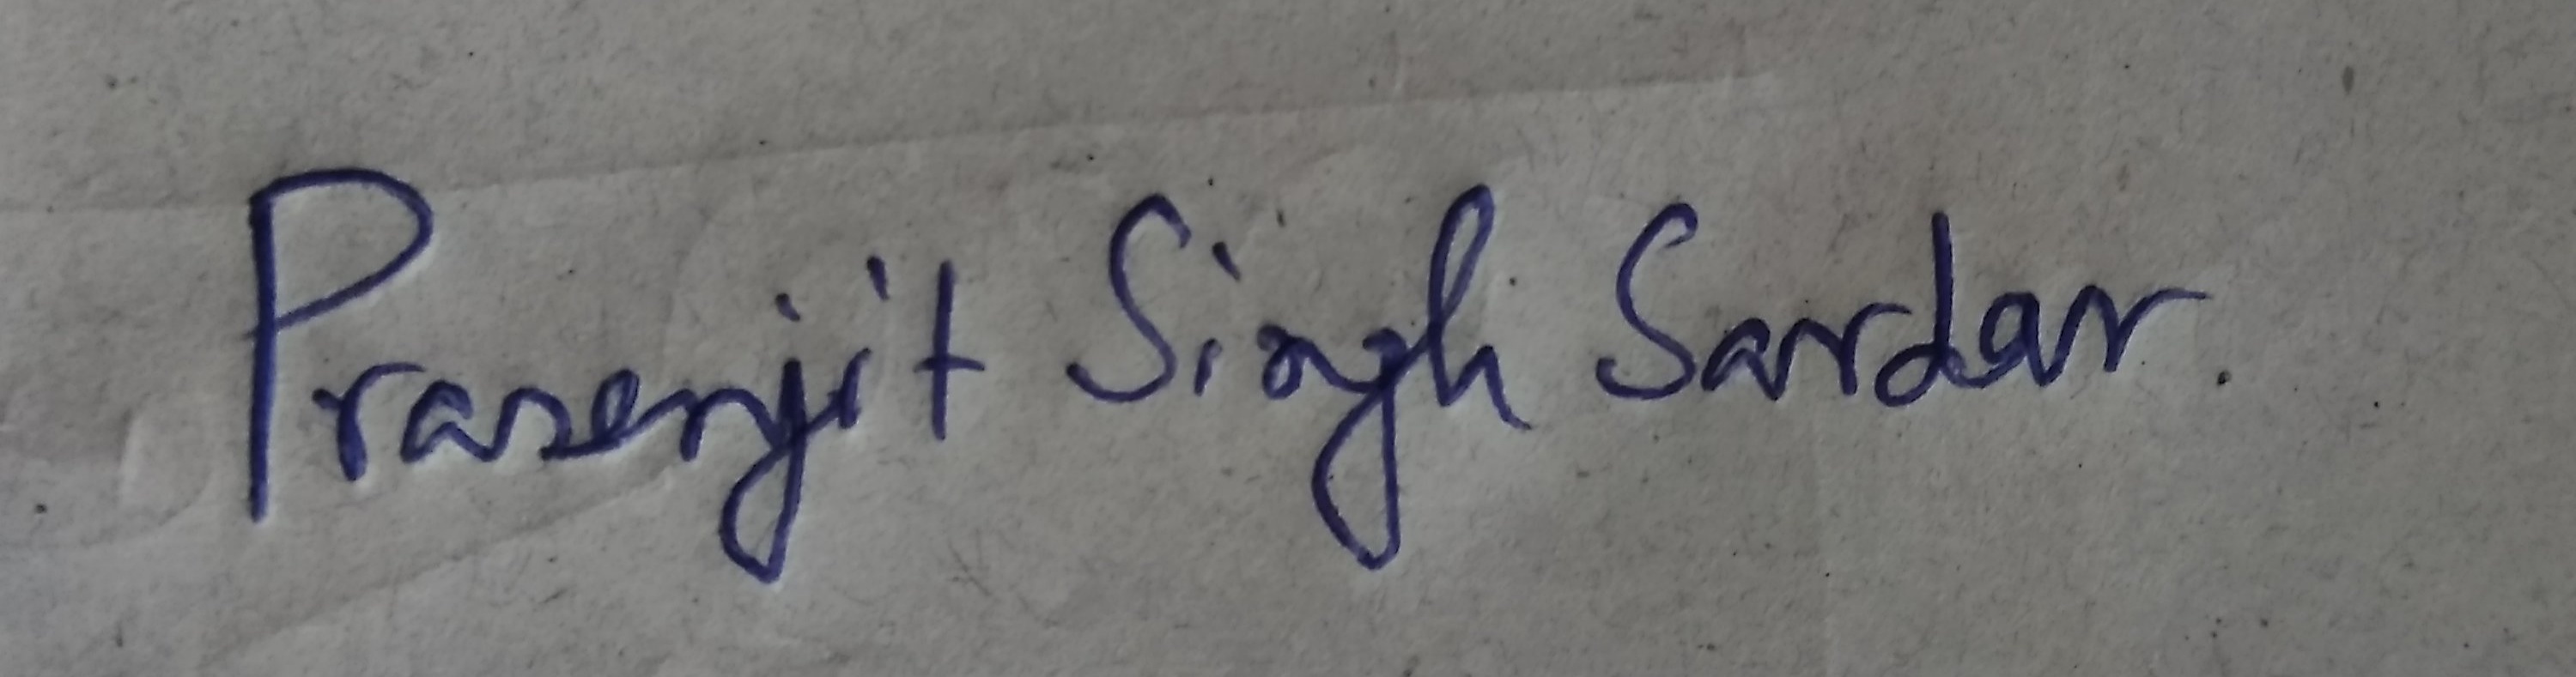 Prasenjit Singh Sardar.